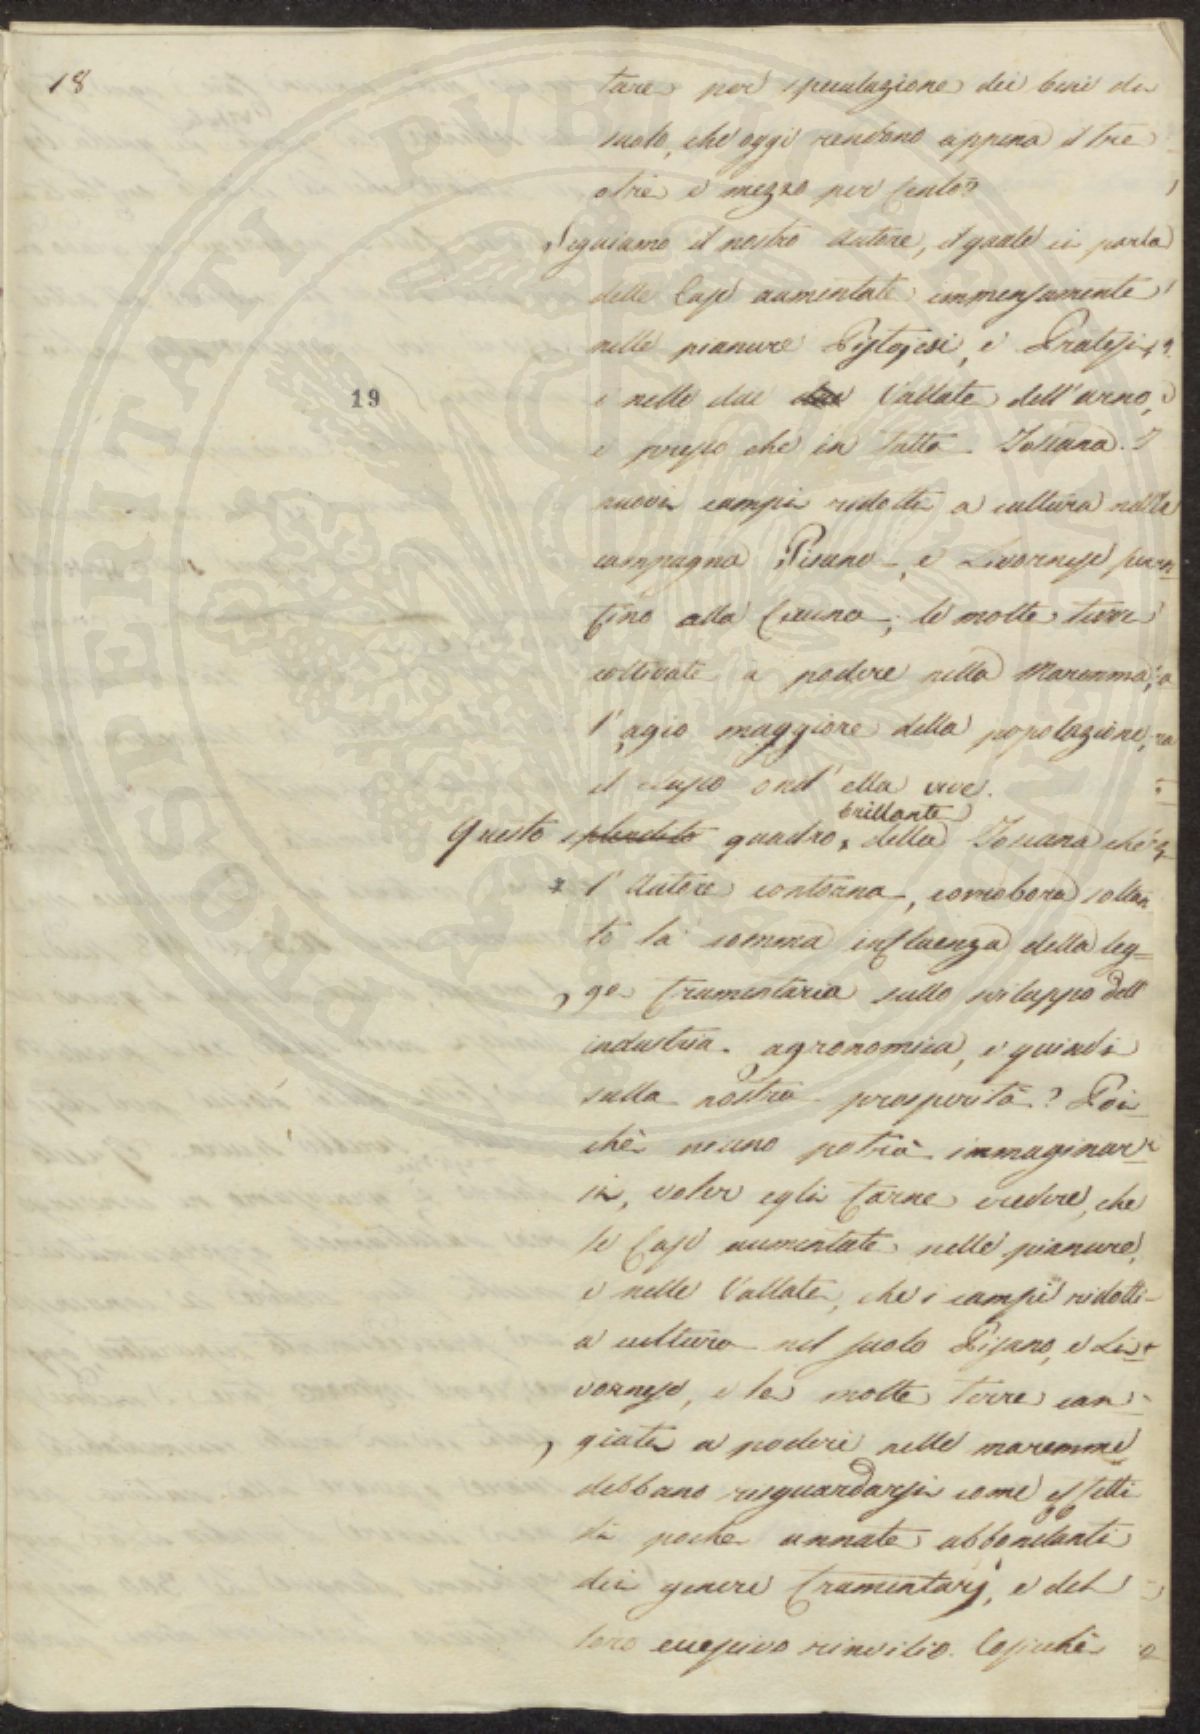 18
tare per speculazione dei beni di
suolo, che oggi rendono appena il tre
o tre e mezzo per cento?
Seguiamo il nostro Autore, il quale ci parla
delle Case aumentate immensamente
nelle pianure Pistojesi, e Pratesi,
e nelle due due Vallate dell'arno,
e presso che in tutta Toscana. I
nuovi campi ridotti a cultura nella
19
campagna Pisana, e Livornese perfin
fino alla Cecina; le molte terre
coltivate a podere nella Maremma;
l'agio maggiore della popolazione,
il lusso ond'ella vive.
brillante
Questo splendido quadro, della Toscana che
l'Autore contorna, corrobora soltan
to la somma influenza della leg=
ge frumentaria sullo sviluppo dell
industria agronomica, e quindi
sulla nostra prosperità? Poi
chè niuno potrà immaginar
si, voler egli farne credere, che
le Case aumentate nelle pianure,
e nelle Vallate, che i campi ridotti
a cultura nel suolo Pisano, e Li=
vornese, e le molte terre can=
giate a poderi nelle maremme
debbano risguardarsi come effetti
di poche annate abbondanti
dei generi frumentarj, e del
loro eccessivo rinvilio. Cosicchè
PROSPERITATI PVBLICAE